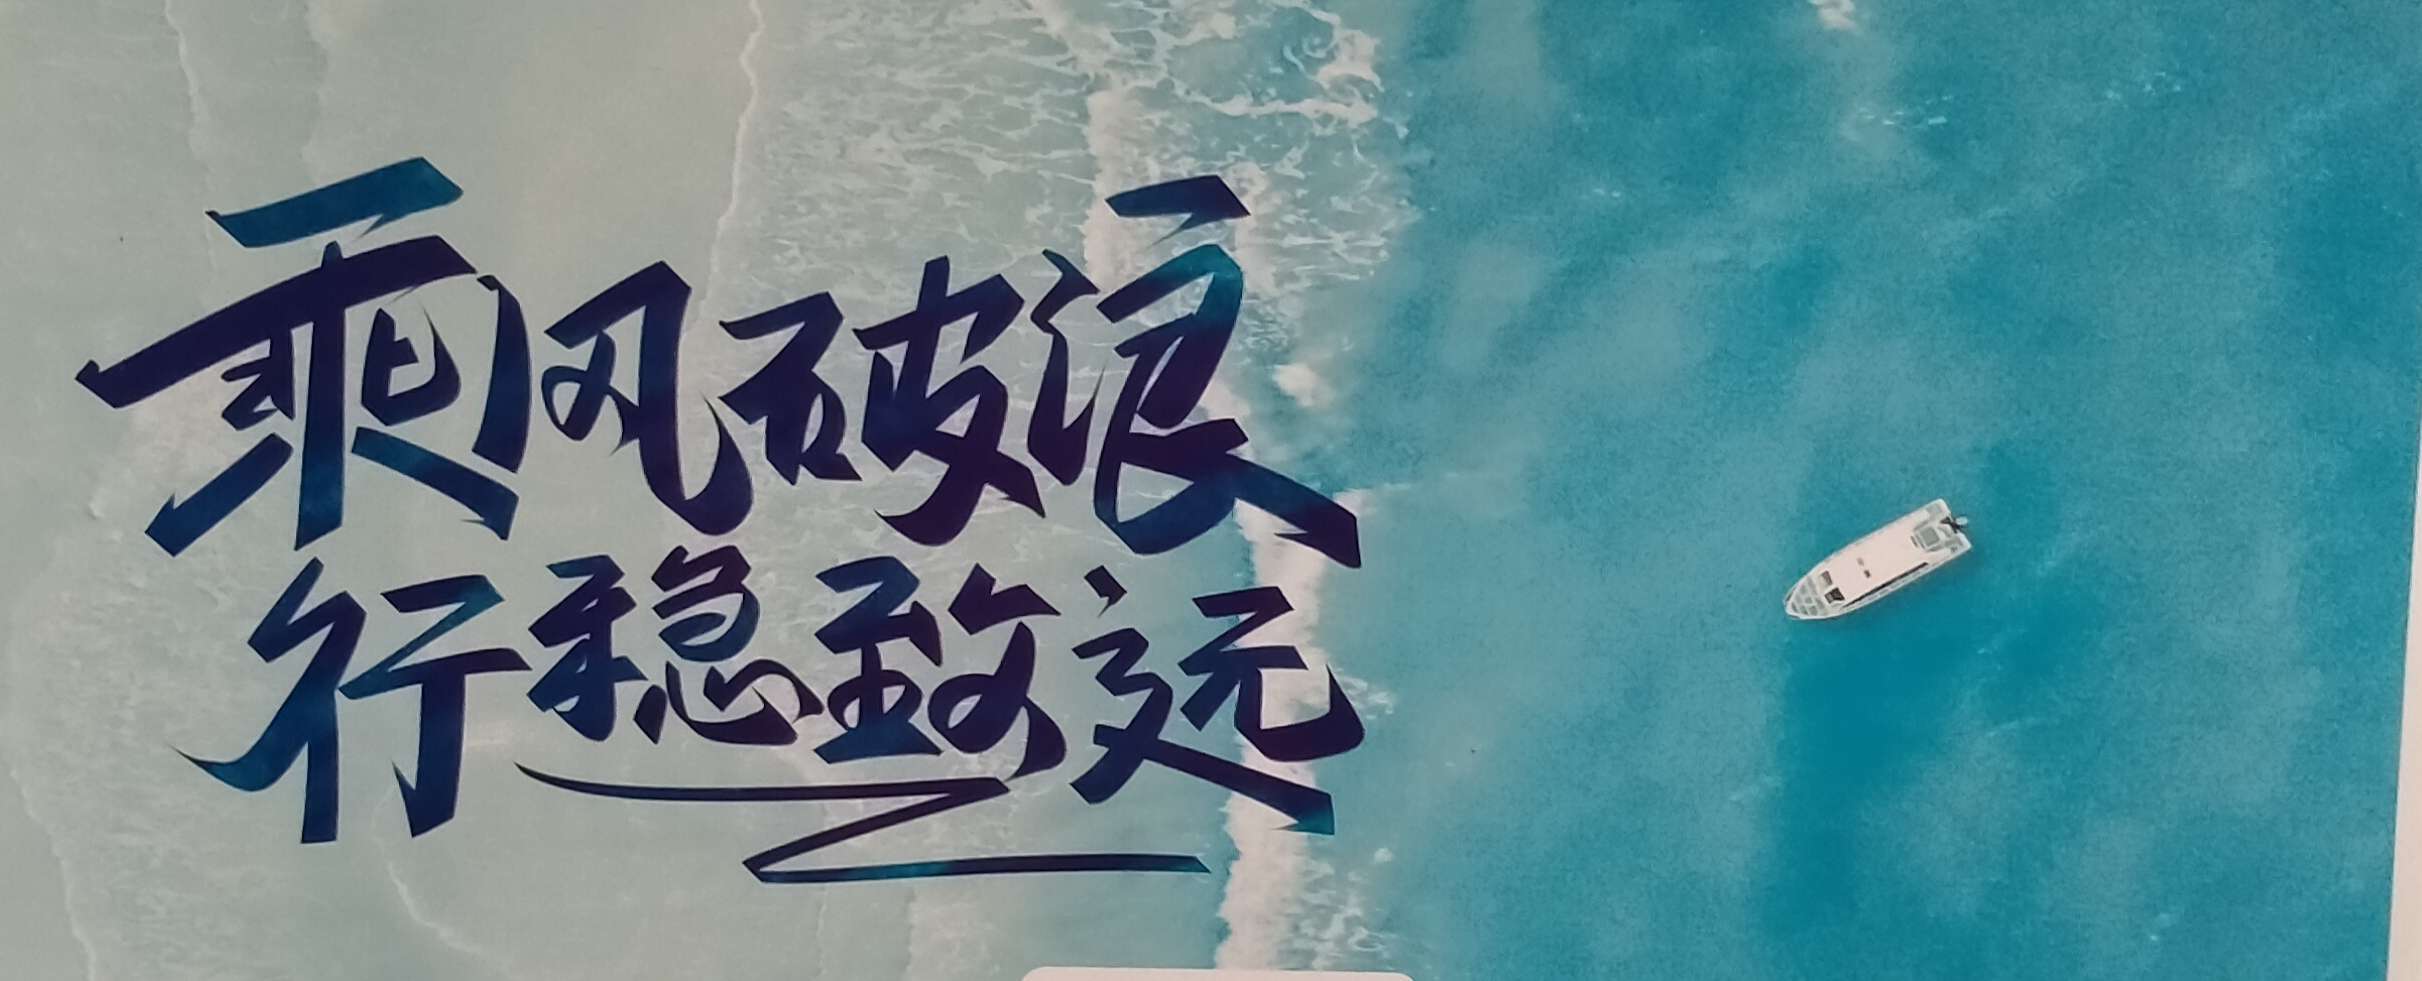 乘风破浪
行稳致远